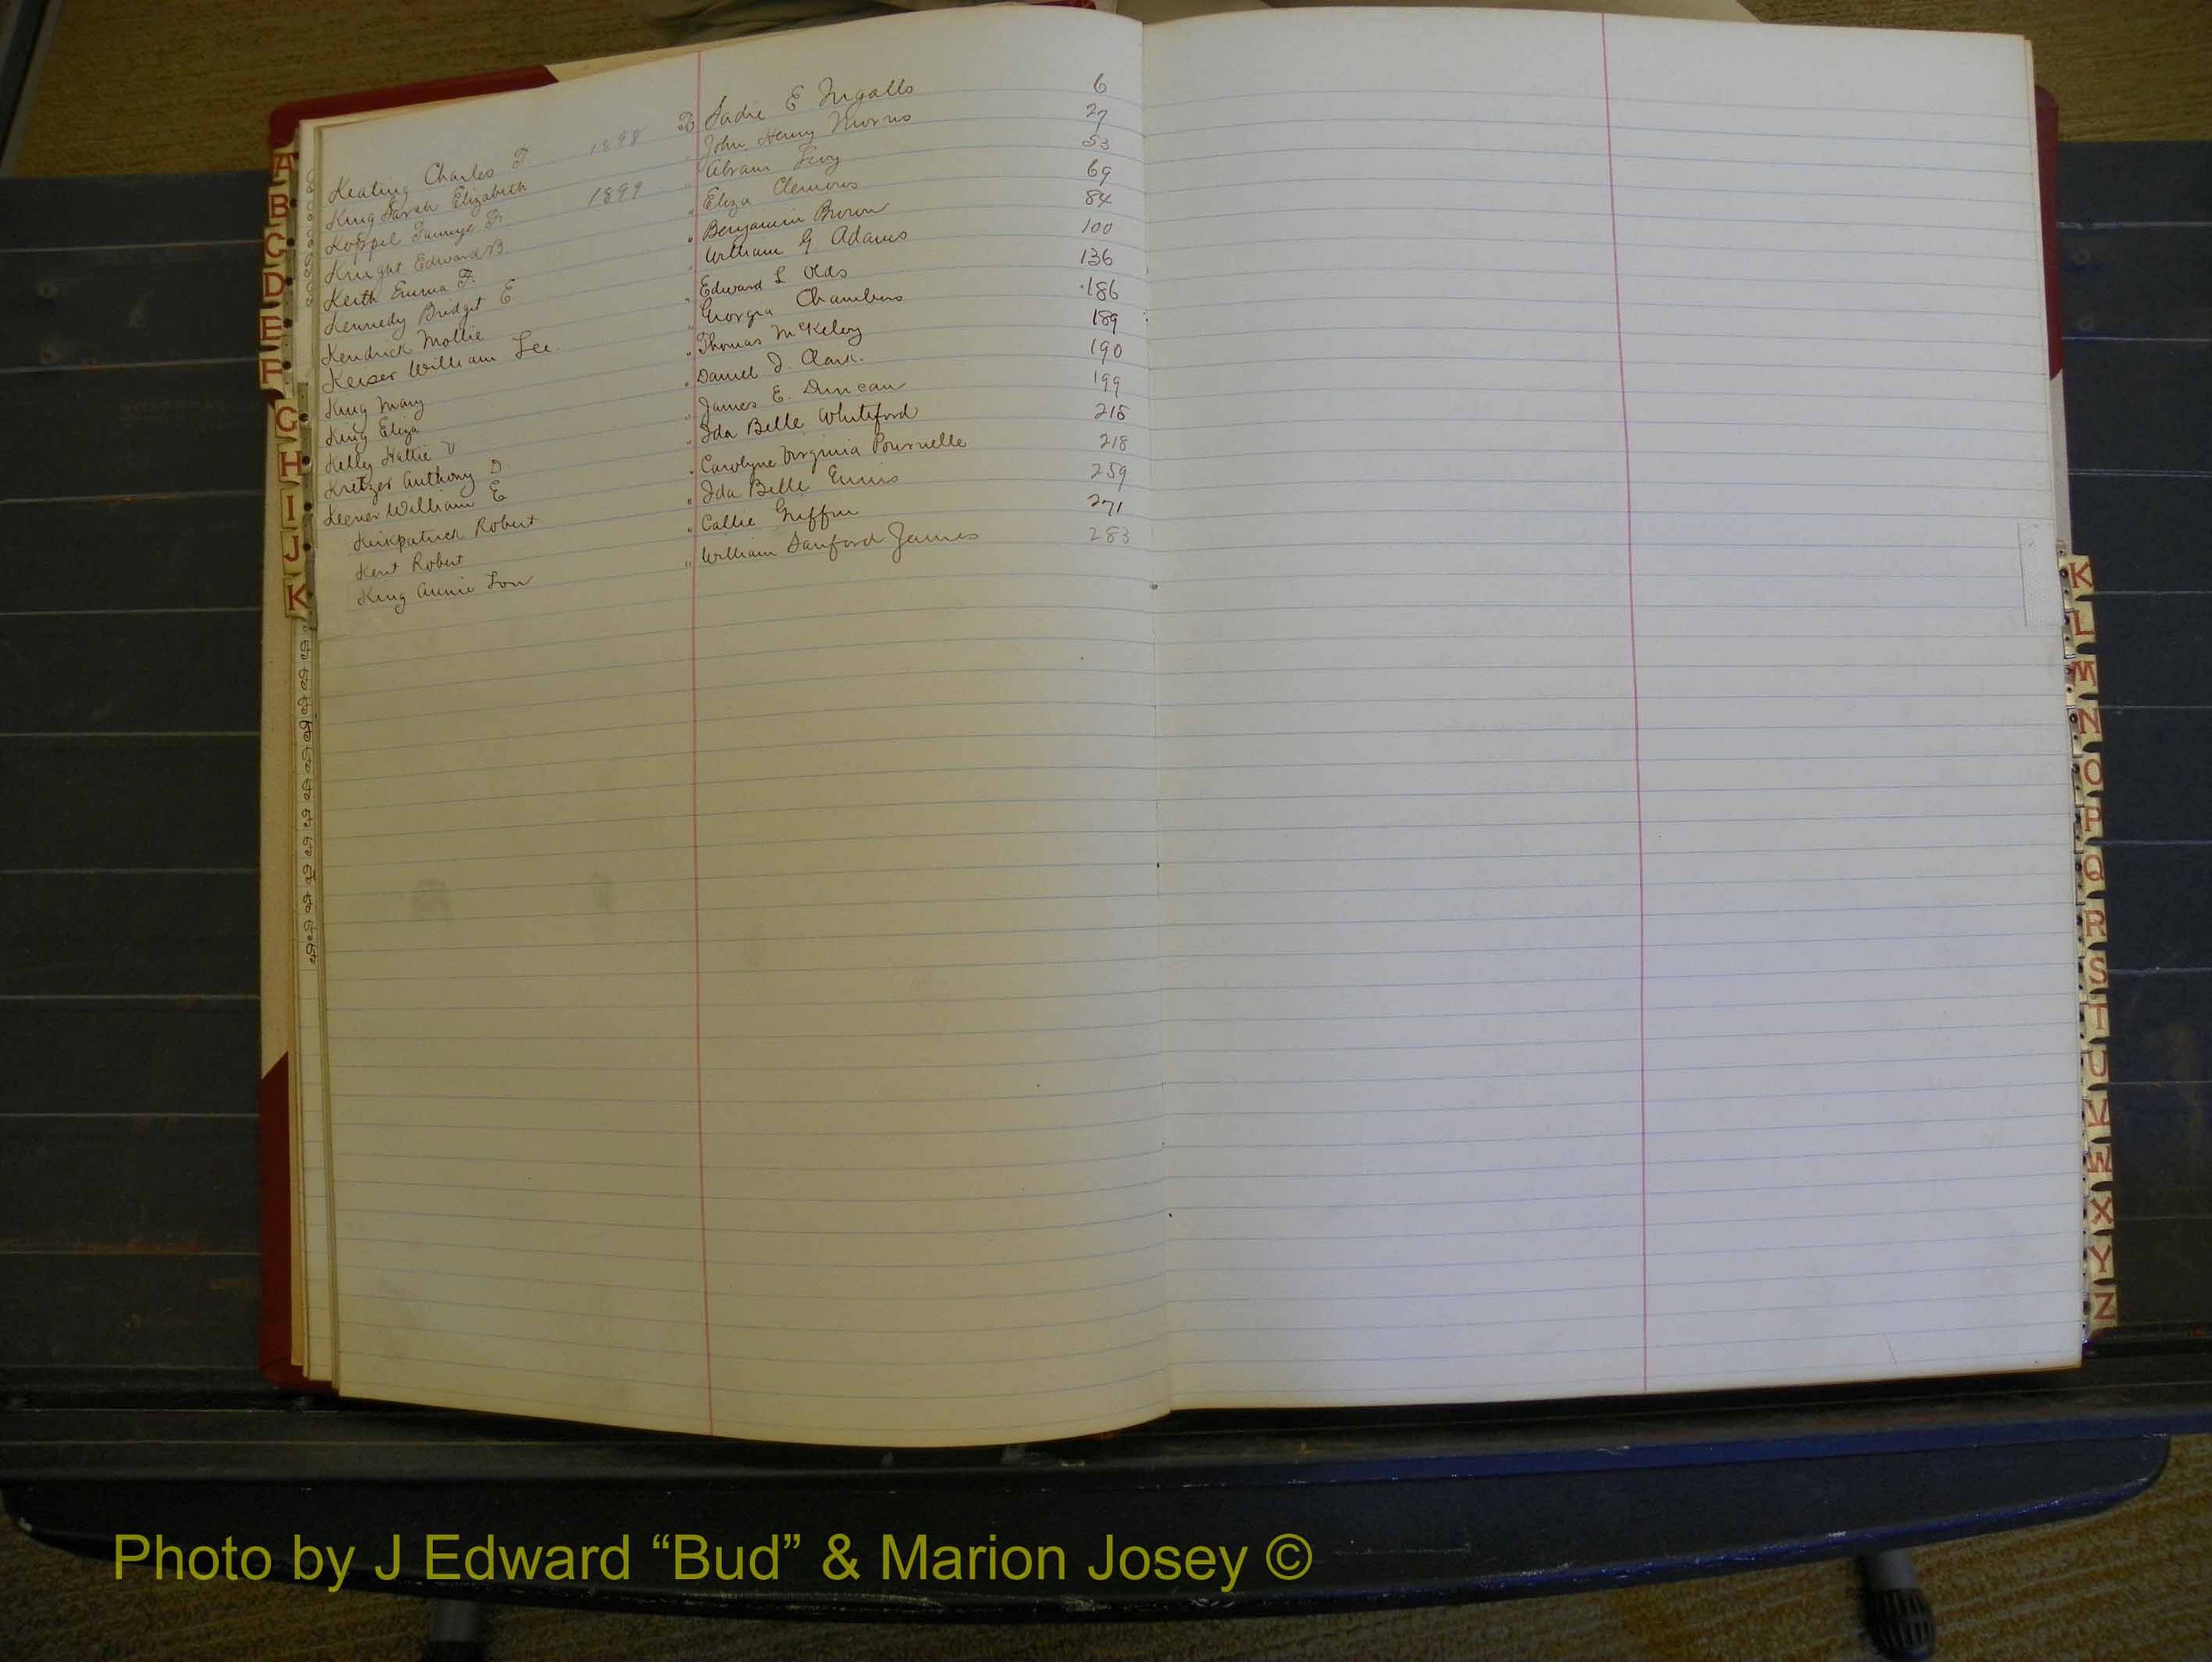 Keating Charles F 1898 To Sadie E Ingalls 6
King Sarah Elizabeth " John Henry Morris 27
Koppel Fannye Fr. 1899 " Abram Levy 53
Knight Edward B. " Eliza Clemons 69
Keith Emma F. " Benjamin Brown 84
Kennedy Bridget E " William G Adams 100
Kendrick Mollie " Edward L Olds 136
Keiser William Lee " Georgia Chambers 186
King Mary " Thomas McKelvy 189
King Eliza " Daniel J. Clark. 190
Kelly Hattie V " James E. Duncan 199
Kretzer Anthony D. " Ida Belle Whiteford 215
Keener William E " Carolyne Virginia Pournelle 218
Kirkpatrick Robert " Ida Belle Ennis 259
Kent Robert " Callie Griffin 271
King Annie Lou " William Sanford James 283
A
B
C
D
E
F
G
H
I
J
K
K
L
M
N
O
P
Q
R
S
T
U
V
W
X
Y
Z
Photo by J Edward “Bud” & Marion Josey ©